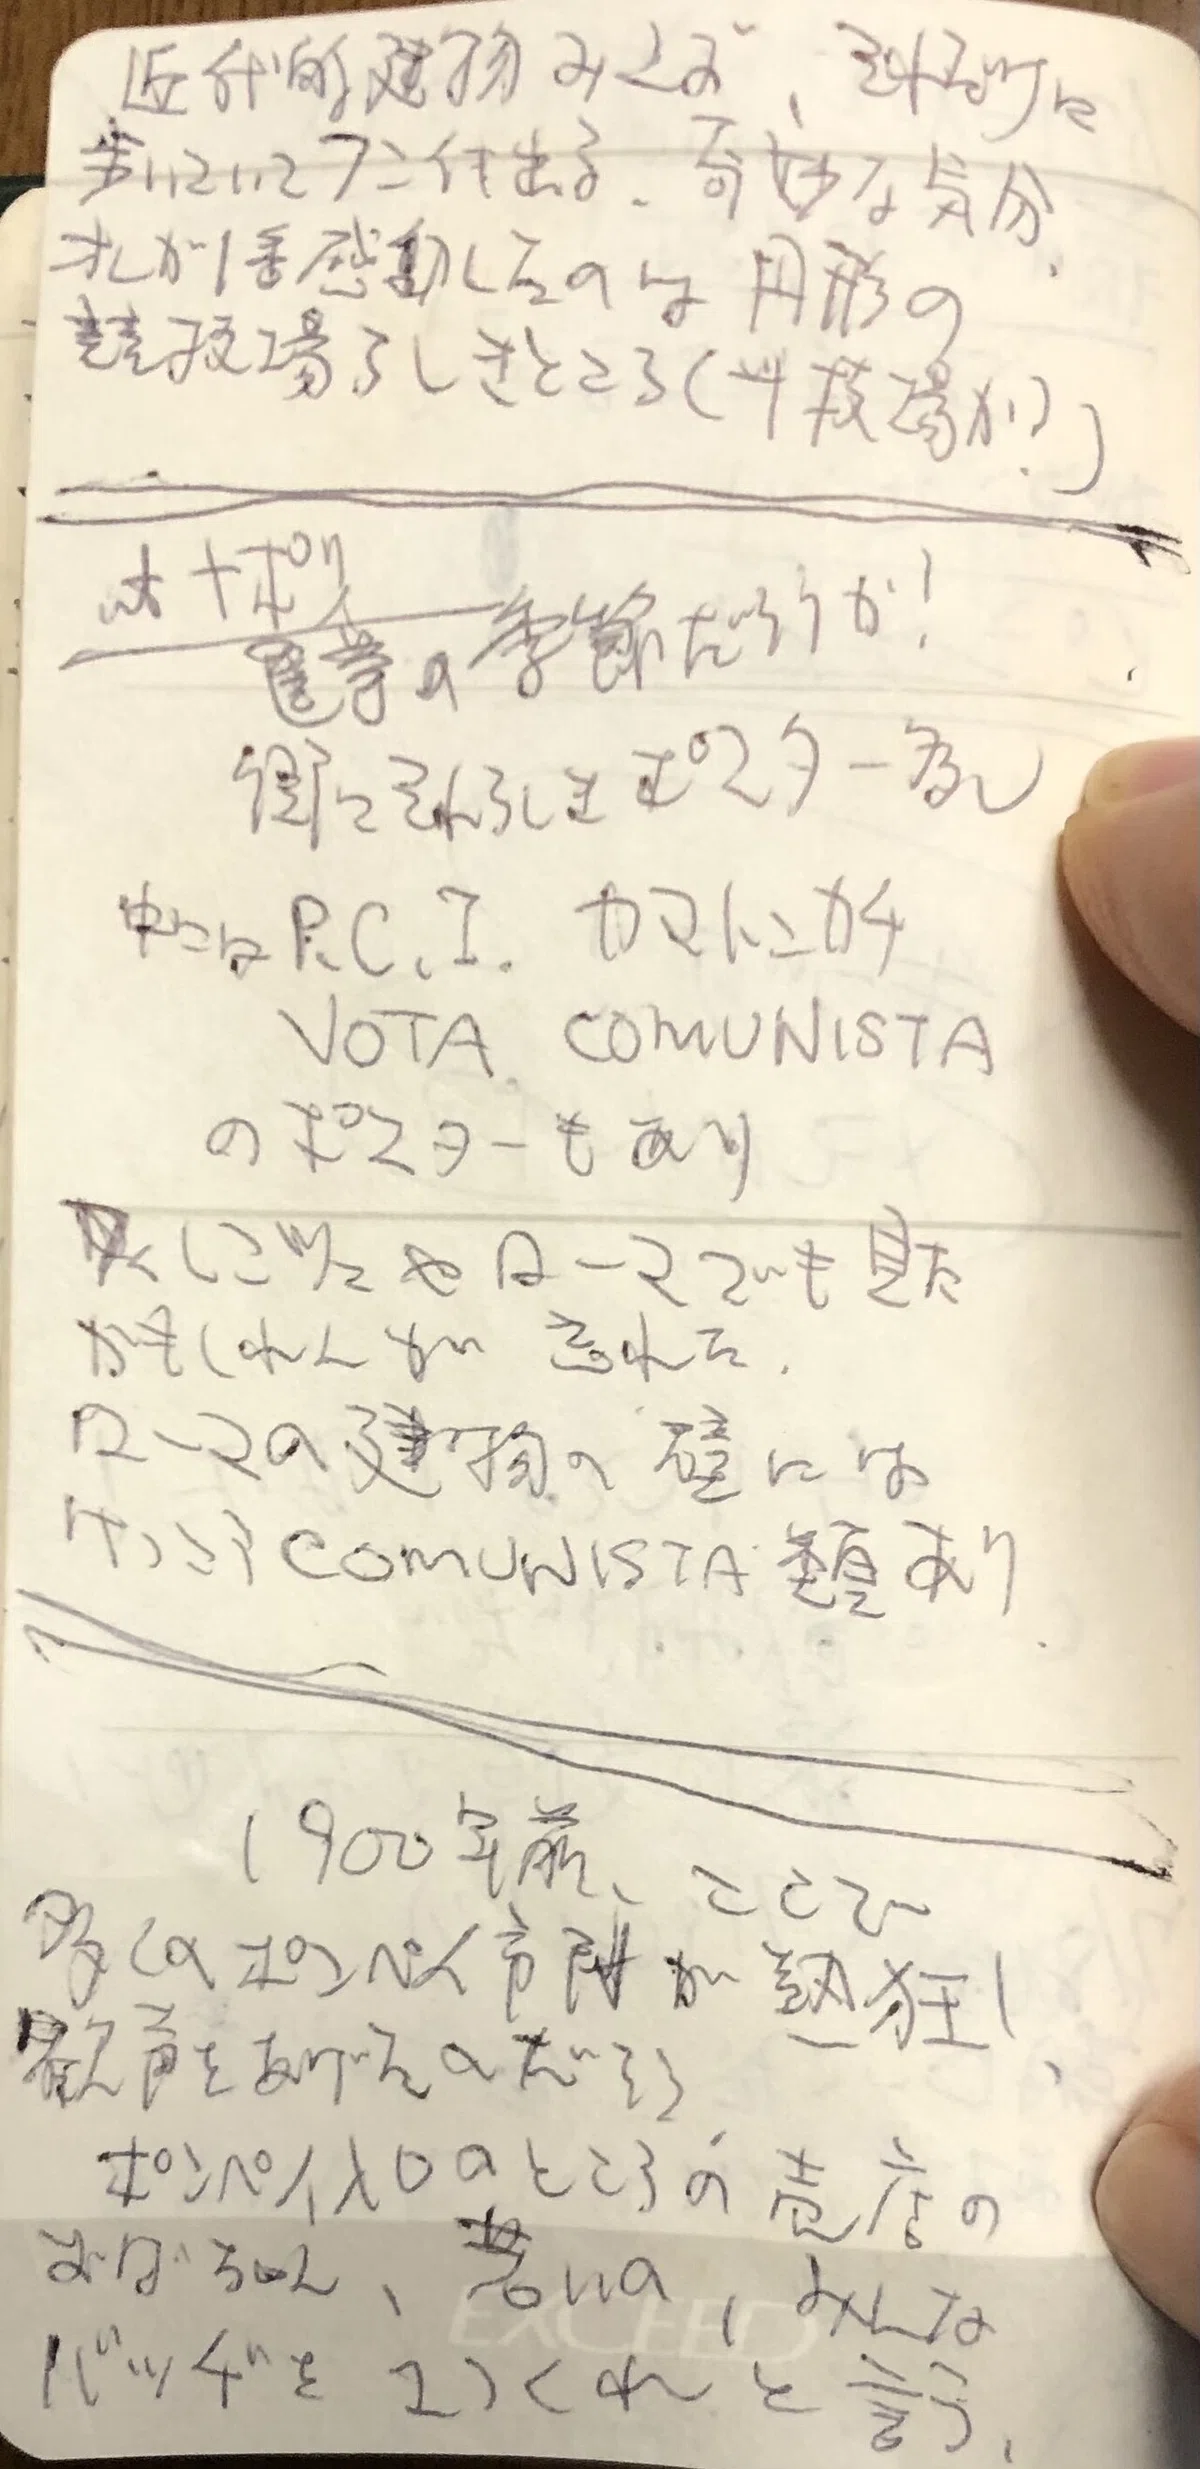 近代的建物みくらべ、それだけに
歩いていてフンイキ出る。奇妙な気分。
オレが1番感動したのは円形の
競技場らしきところ(斗技場か?)
at ナポリ
選挙の季節だろうか!
街にそれらしきポスター多し
中には P.C.I. カマトンカチ
VOTA COMUNISTA
のポスターもあり
しにせやローマでも見た
かもしれんが 忘れた.
ローマの建物の壁には
けっこう COMUNISTA 類あり.
1900年前、ここで
多くのポンペイ市民が熱狂し、
歓声をあげたのだろう
ポンペイ入口のところの売店の
おばちゃん、若いの、みんな
バッヂを1つくれと言う、
EXCEED